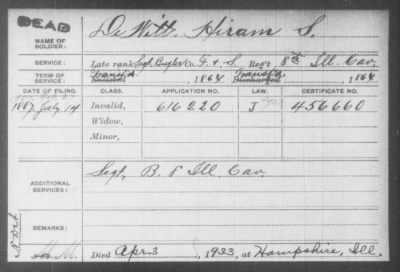 DEAD
NAME OF SOLDIER: De Witt, Hiram S.
SERVICE: Late rank Sgt. Bugler Co. F. & S., Reg't 8th Ill. Cav.
TERM OF SERVICE: Transf'd, 1864 Transf'd, 1864
DATE OF FILING. CLASS. APPLICATION NO. LAW. CERTIFICATE NO.
1887, July 14 Invalid, 616220 J 456660
Widow,
Minor,
ADDITIONAL SERVICES: Sgt, B. 8 Ill Cav
REMARKS:
Died Apr 3, 1933, at Hampshire, Ill.